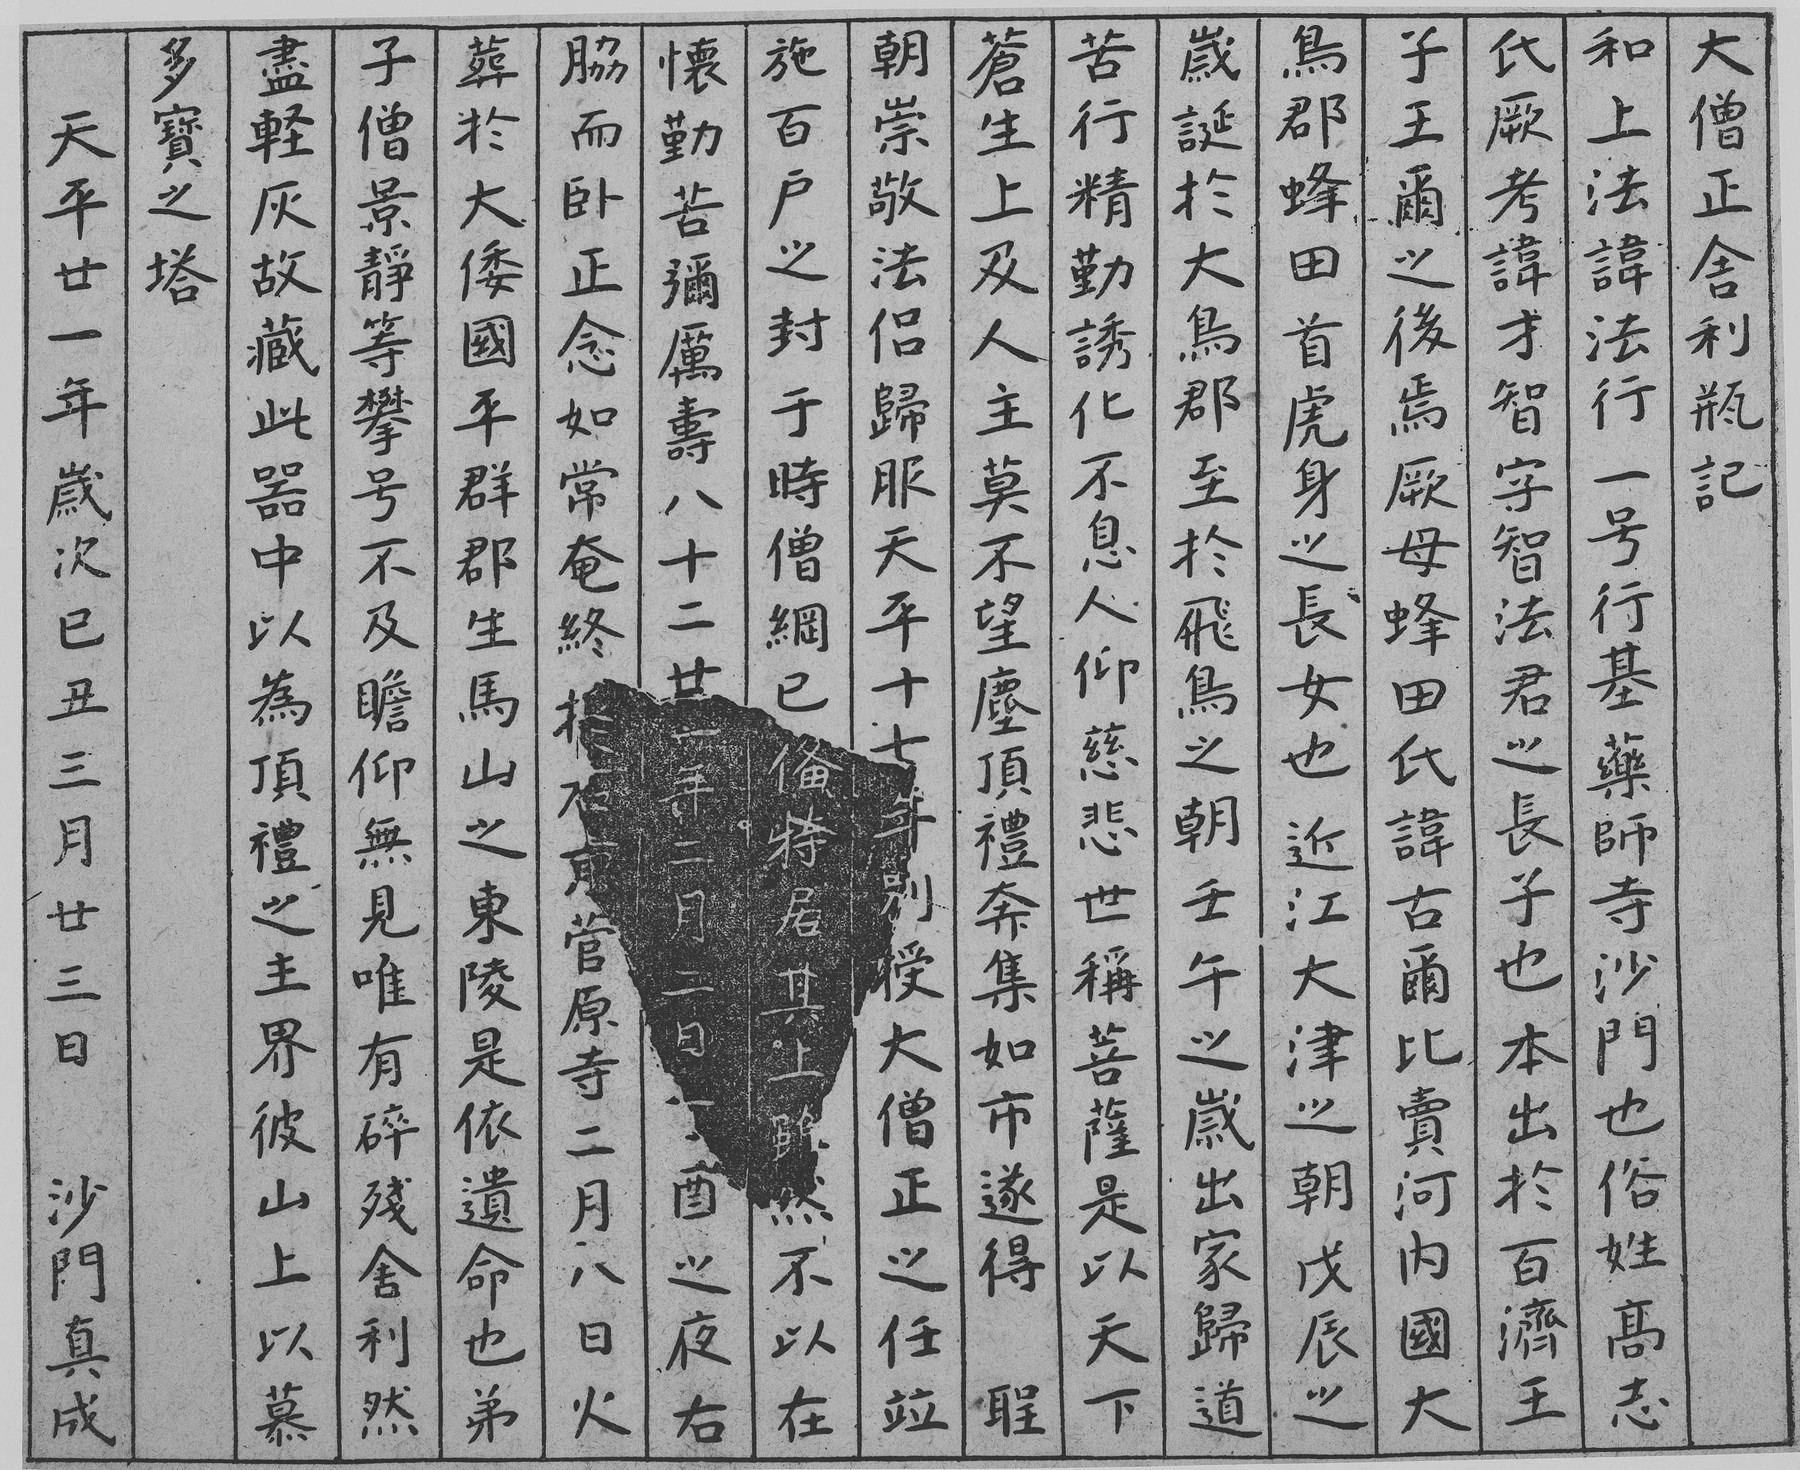 大僧正舎利瓶記
和上法諱法行一号行基藥師寺沙門也俗姓髙志
氏厥考諱才智字智法君之長子也本出於百濟王
子王爾之後焉厥母蜂田氏諱古爾比賣河内國大
鳥郡蜂田首虎身之長女也近江大津之朝戊辰之
歳誕於大鳥郡至於飛鳥之朝壬午之歳出家歸道
苦行精勤誘化不息人仰慈悲世稱菩薩是以天下
蒼生上及人主莫不望塵頂禮奔集如市遂得　聖
朝崇敬法侶歸服天平十七年別授大僧正之任竝
施百戸之封于時僧綱已備特居其上雖然不以在
懐勤苦彌厲壽八十二廿一年二月二日丁酉之夜右
脇而卧正念如常奄終於右京菅原寺二月八日火
葬於大倭國平群郡生馬山之東陵是依遺命也弟
子僧景靜等攀号不及瞻仰無見唯有碎殘舎利然
盡軽灰故藏此器中以為頂禮之主界彼山上以慕
多寳之塔
天平廿一年歳次己丑三月廿三日　沙門真成